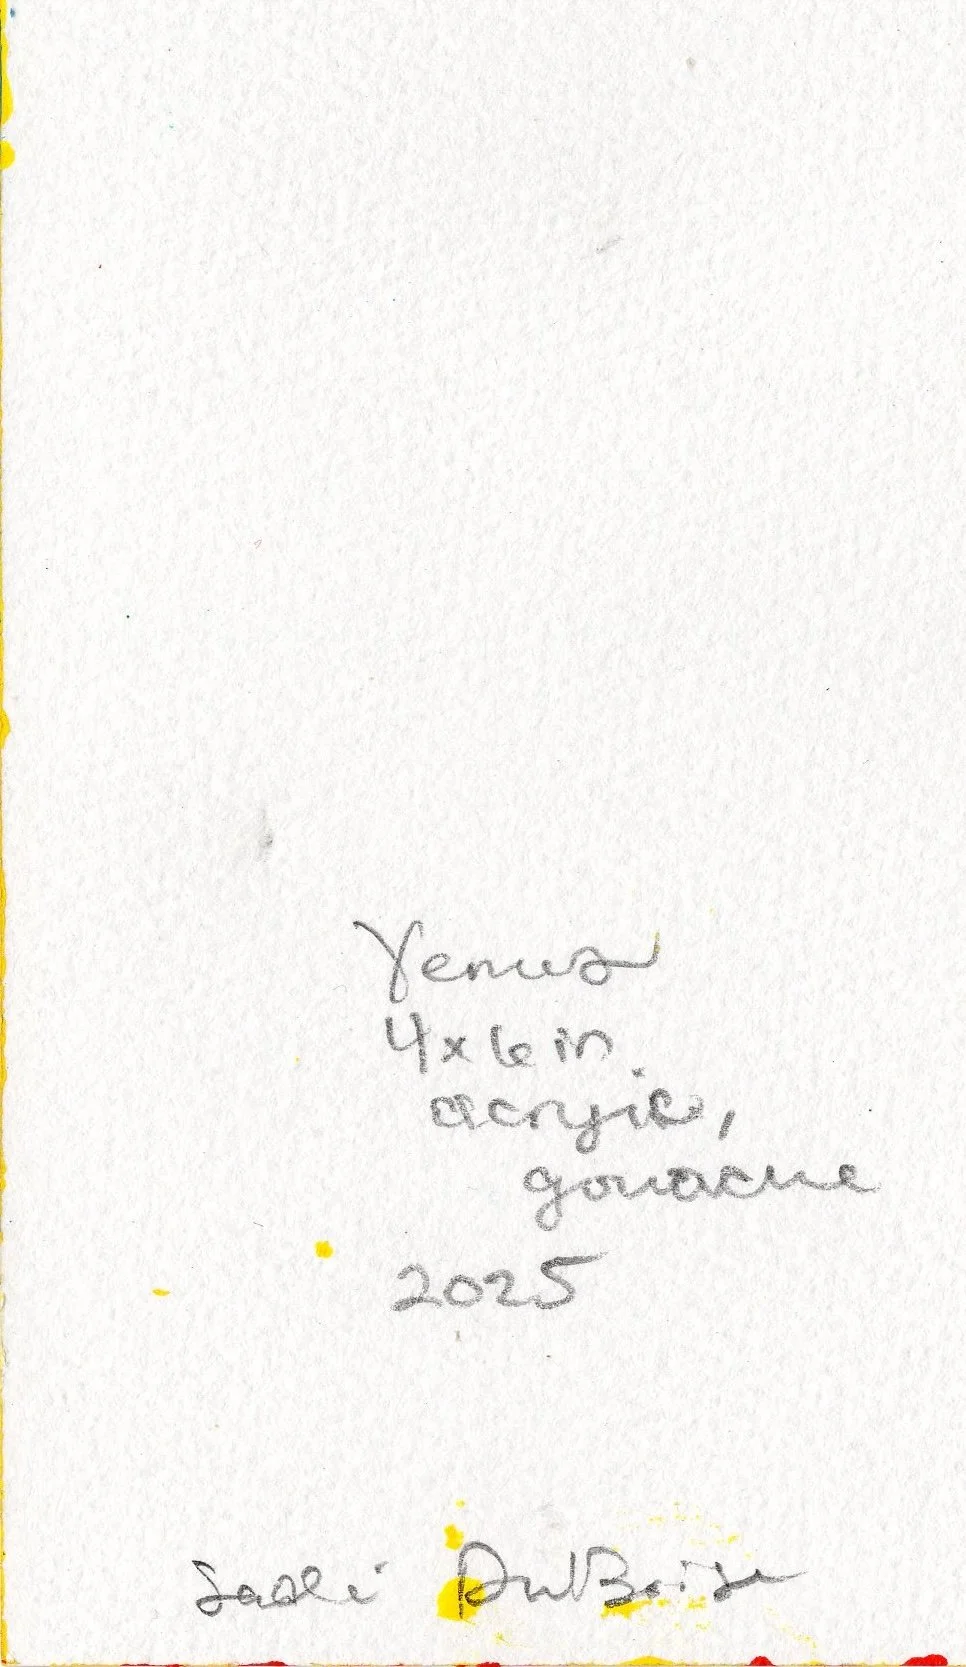 Venus
4x6 in.
acrylic,
gouache
2025
Sadi DuBoise